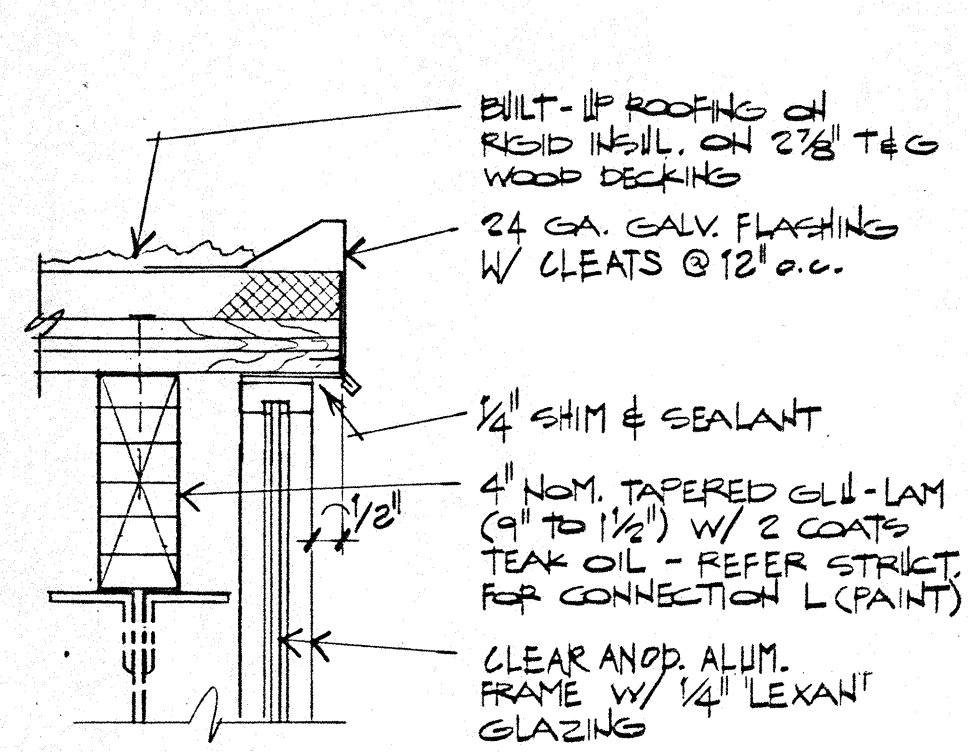 BUILT-UP ROOFING ON
RIGID INSUL. ON 2⅞" T&G
WOOD DECKING
24 GA. GALV. FLASHING
W/ CLEATS @ 12" o.c.
1/4" SHIM & SEALANT
4" NOM. TAPERED GLU-LAM
(9" TO 1½") W/ 2 COATS
TEAK OIL - REFER STRUCT.
FOR CONNECTION L (PAINT)
1/2"
CLEAR ANOD. ALUM.
FRAME W/ 1/4" "LEXAN"
GLAZING